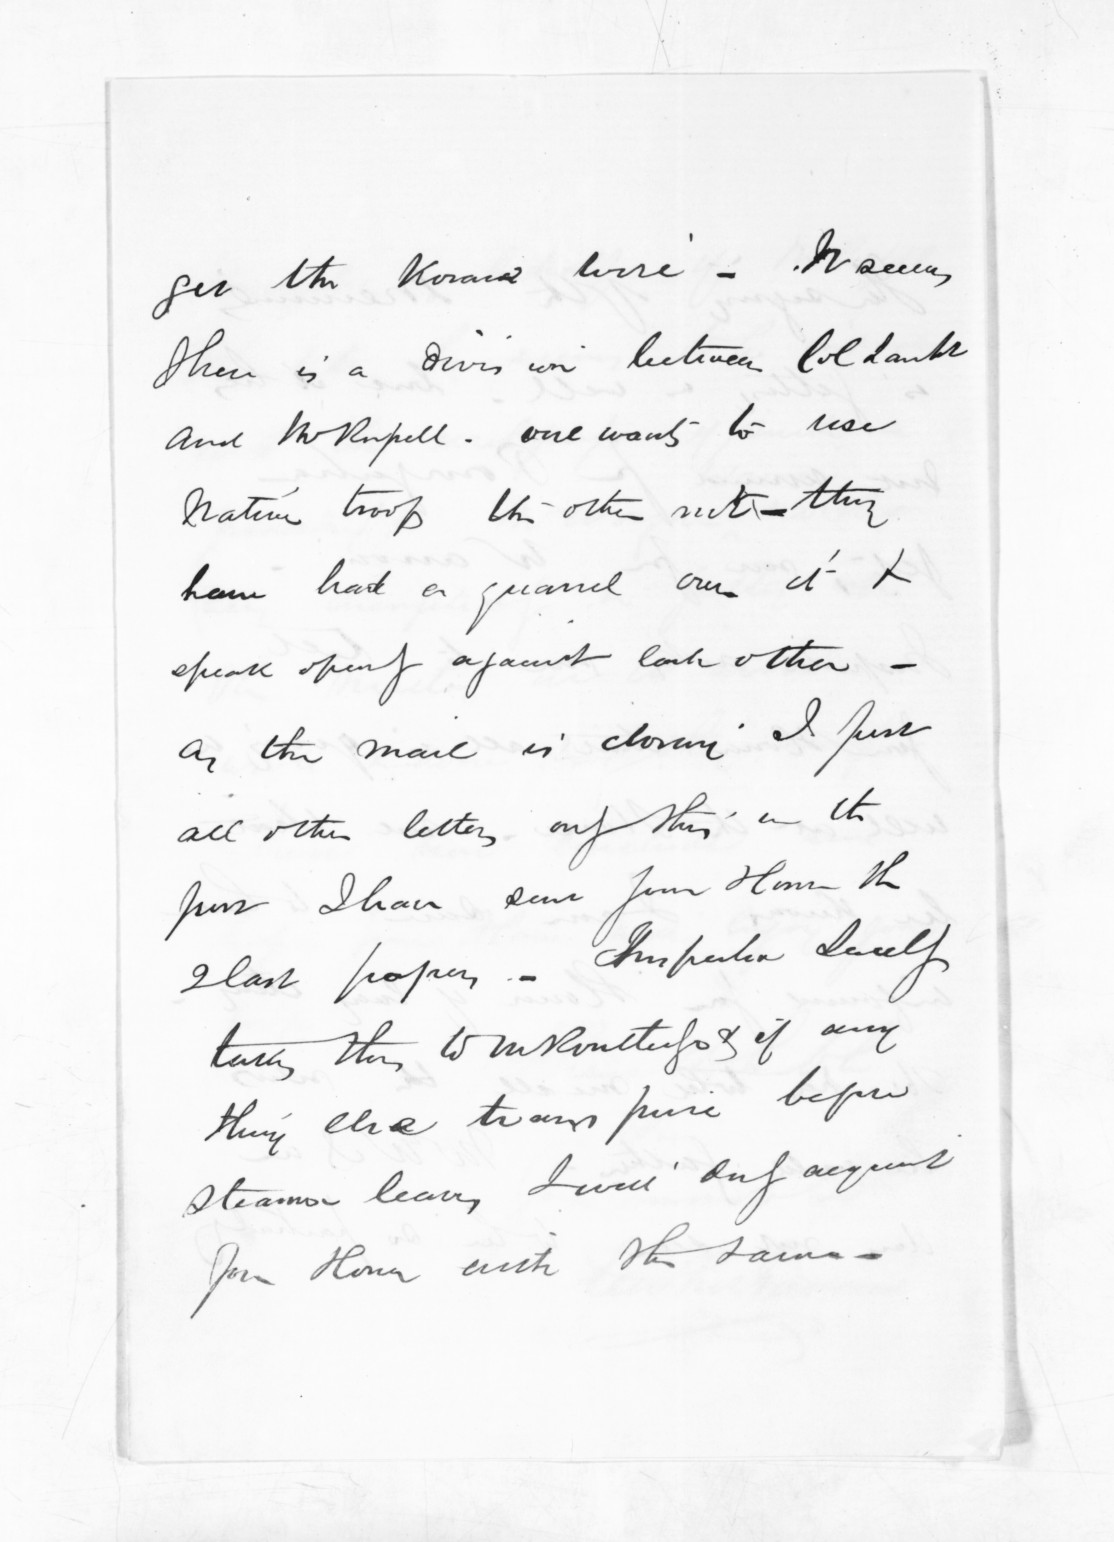 get the Horace wire - It seems
there is a division between Col Lambt
and Mr Russell - one wants to use
Native troops the other not - they
have had a quarrel over it &
speak openly against each other -
as the mail is closing I just
all other letters only this in the
post I have sent your Honor the
2 last papers - Inspector Scully
takes this to Mr Routledge & if any
thing else transpire before
steamer leaves I will only acquaint
Your Honor with the same -